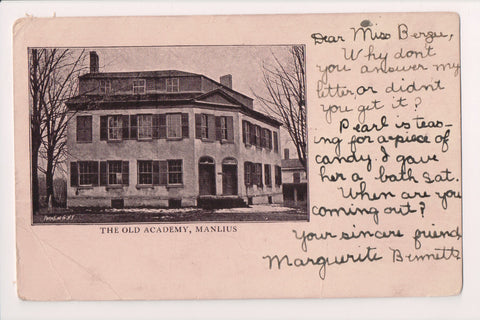 Dear Miss Bergu,
Why don't
you answer my
letter, or didnt
you get it?
Pearl is teas-
ing for a piece of
candy. I gave
her a bath Sat.
When are you
coming out?
Your sincere friend,
Marguerite Bennett
THE OLD ACADEMY, MANLIUS